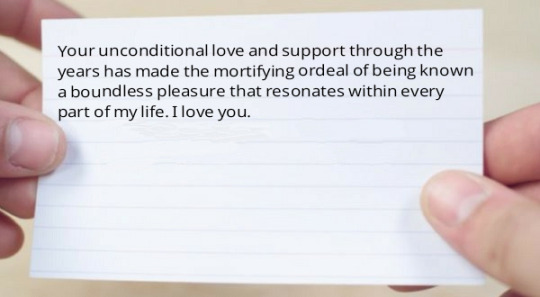 Your unconditional love and support through the
years has made the mortifying ordeal of being known
a boundless pleasure that resonates within every
part of my life. I love you.